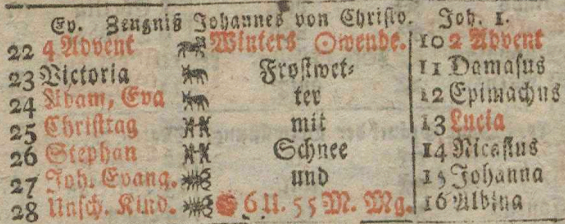 Ev. Zeugniß Johannes von Christo. Joh. 1.
22 4 Advent Winters ☉wende. 10 2 Advent
23 Victoria Frostwet⸗ 11 Damasus
24 Adam, Eva ter 12 Epimachus
25 Christtag mit 13 Lucia
26 Stephan Schnee 14 Nicasius
27 Joh. Evang. und 15 Johanna
28 Unsch. Kind. 6 U. 55 M. Mg. 16 Albina